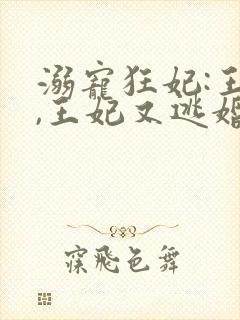 溺寵狂妃:王
,王妃又逃婚
寐飛色舞